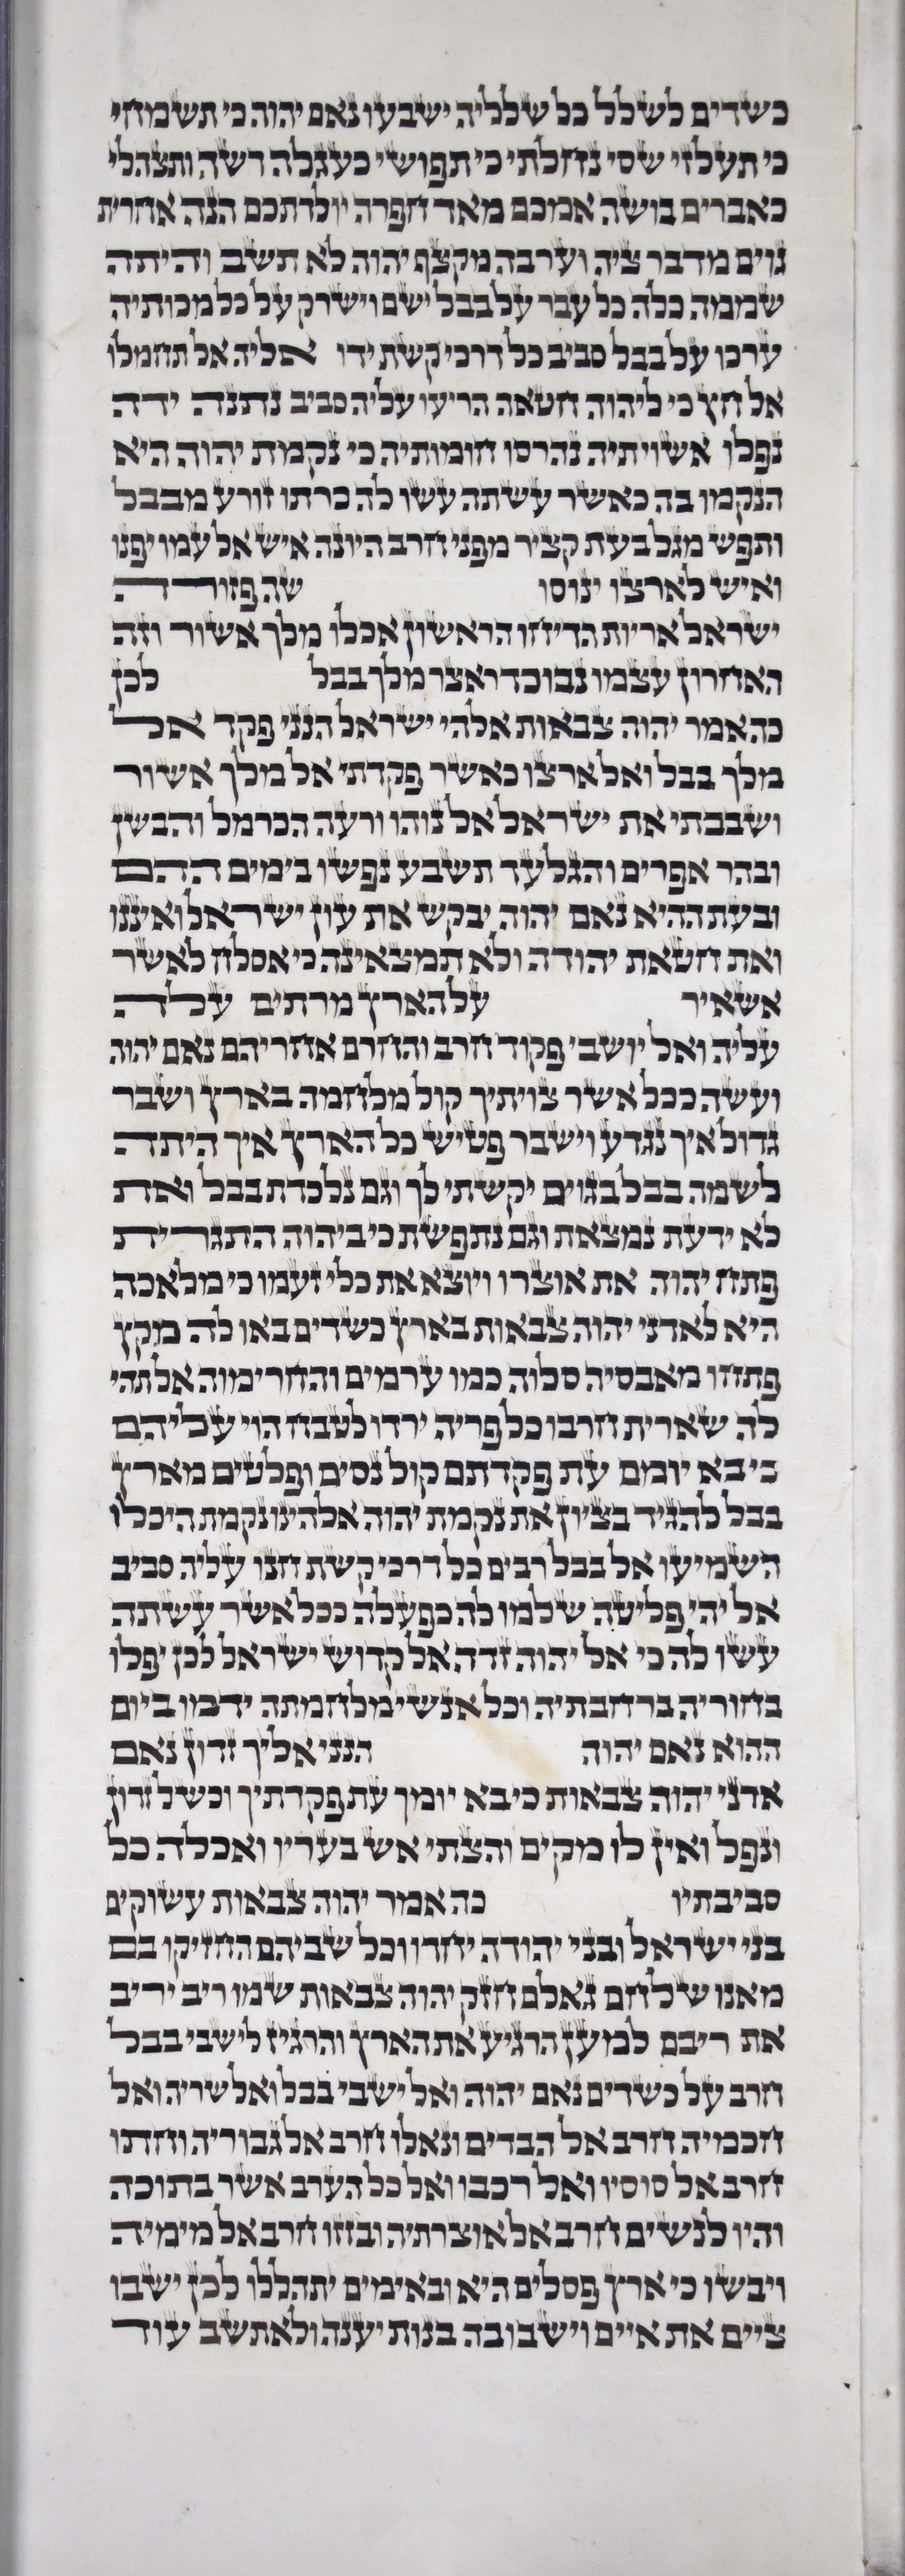 כשדים לשלל כל שלליה ישבעו נאם יהוה כי תשמחי
כי תעלזי שסי נחלתי כי תפושי כעגלה דשה ותצהלי
כאברים בושה אמכם מאד חפרה יולדתכם הנה אחרית
גוים מדבר ציה וערבה מקצף יהוה לא תשב והיתה
שממה כלה כל עבר על בבל ישם וישרק על כל מכותיה
ערכו על בבל סביב כל דרכי קשת ידו אליה אל תחמלו
אל חץ כי ליהוה חטאה הריעו עליה סביב נתנה ידה
נפלו אשויתיה נהרסו חומותיה כי נקמת יהוה היא
הנקמו בה כאשר עשתה עשו לה כרתו זורע מבבל
ותפש מגל בעת קציר מפני חרב היונה איש אל עמו יפנו
ואיש לארצו ינוסו שה פזורה
ישראל אריות הדיחו הראשון אכלו מלך אשור וזה
האחרון עצמו נבוכדראצר מלך בבל לכן
כה אמר יהוה צבאות אלהי ישראל הנני פקד אל
מלך בבל ואל ארצו כאשר פקדתי אל מלך אשור
ושבבתי את ישראל אל נוהו ורעה הכרמל והבשן
ובהר אפרים והגלעד תשבע נפשו בימים ההם
ובעת ההיא נאם יהוה יבקש את עון ישראל ואיננו
ואת חטאת יהודה ולא תמצאינה כי אסלח לאשר
אשאיר על הארץ מרתים עלה
עליה ואל יושבי פקוד חרב והחרם אחריהם נאם יהוה
ועשה ככל אשר צויתיך קול מלחמה בארץ ושבר
גדול איך נגדע וישבר פטיש כל הארץ איך היתה
לשמה בבל בגוים יקשתי לך וגם נלכדת בבל ואת
לא ידעת נמצאת וגם נתפשת כי ביהוה התגרית
פתח יהוה את אוצרו ויוצא את כלי זעמו כי מלאכה
היא לאדני יהוה צבאות בארץ כשדים באו לה מקץ
פתחו מאבסיה סלוה כמו ערמים והחרימוה אל תהי
לה שארית חרבו כל פריה ירדו לטבח הוי עליהם
כי בא יומם עת פקדתם קול נסים ופלטים מארץ
בבל להגיד בציון את נקמת יהוה אלהינו נקמת היכלו
השמיעו אל בבל רבים כל דרכי קשת חנו עליה סביב
אל יהי פליטה שלמו לה כפעלה ככל אשר עשתה
עשו לה כי אל יהוה זדה אל קדוש ישראל לכן יפלו
בחוריה ברחבתיה וכל אנשי מלחמתה ידמו ביום
ההוא נאם יהוה הנני אליך זדון נאם
אדני יהוה צבאות כי בא יומך עת פקדתיך וכשל זדון
ונפל ואין לו מקים והצתי אש בעריו ואכלה כל
סביבתיו כה אמר יהוה צבאות עשוקים
בני ישראל ובני יהודה יחדו וכל שביהם החזיקו בם
מאנו שלחם גאלם חזק יהוה צבאות שמו ריב יריב
את ריבם למען הרגיע את הארץ והרגיז לישבי בבל
חרב על כשדים נאם יהוה ואל ישבי בבל ואל שריה ואל
חכמיה חרב אל הבדים ונאלו חרב אל גבוריה וחתו
חרב אל סוסיו ואל רכבו ואל כל הערב אשר בתוכה
והיו לנשים חרב אל אוצרתיה ובזזו חרב אל מימיה
ויבשו כי ארץ פסלים היא ובאימים יתהללו לכן ישבו
ציים את איים וישבו בה בנות יענה ולא תשב עוד